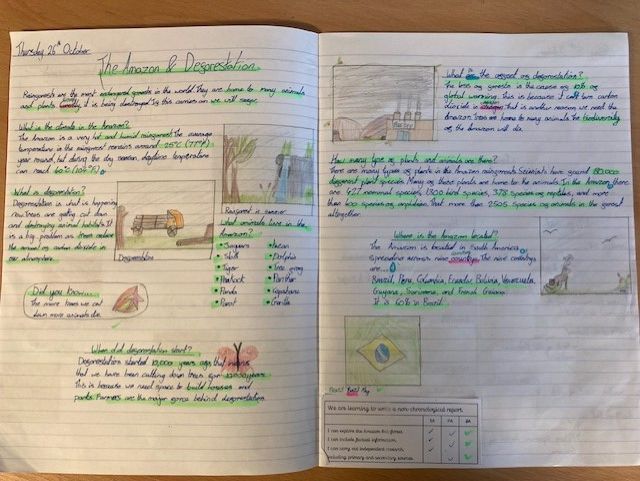 Thursday 26th October
The Amazon & Degorestation
Raingorests are the most endangered gorests in the world. They are home to many animals
and plants it is being destroyed. Ig this carries on we will suger.
What is the climate in the Amazon?
The Amazon is a very hot and humid raingorest. The average
temperature in the raingorest remains around 25°C (77°F)
year round, but during the dry season, daytime temperature
can reach 40°C (104°F).
Raingorest in summer
What is degorestation?
Degorestation is what is happening
now, trees are getting cut down
and destroying animal habitats. It
is a big problem as trees reduce
the amount og carbon dioxide in
our atmosphere.
Degorestation
What animals live in the
Amazon?
Jaguars
Sloth
Tiger
Peacock
Panda
Parrot
Toucan
Dolphin
Tree grog
Panther
Capybara
Gorilla
Did you know...
The more trees we cut
down more animals die.
When did degorestation start?
Degorestation started 10,000 years ago that means
that we have been calling down trees gor 10,000 years.
This is because we need space to build houses and
parks. Farmers are the major gorce behind degorestation.
What the eggect og degorestation?
The loss og gorests is the cause og 10% og
global warming. This is because
dioxide is that is another reason we need the
Amazon. Trees are home to many animals the biodiversity
og the Amazon will die.
How many type og plants and animals are there?
There are many types og plants in the Amazon raingorests. Scientists have gound 80,000
diggerent plant species. Many og these plants are home to the animals. In the Amazon there
are 427 mammal species, 1300 bird species, 378 species og reptiles, and more
than 400 species og amphibians. That more than 2505 species og animals in the gorest
altogether.
Where is the Amazon located?
The Amazon is located in South America,
spreading across nine countrys. The nine countrys
are...
Brazil, Peru, Columbia, Ecuador, Bolivia, Venezuela,
Guyana, Suriname, and French Guiana.
It is 60% in Brazil.
Brazil glag
We are learning to write a non-chronological report.
SA PA TA
I can explain the Amazon Rainforest.
I can include factual information.
I can carry out independent research,
including primary and secondary sources.